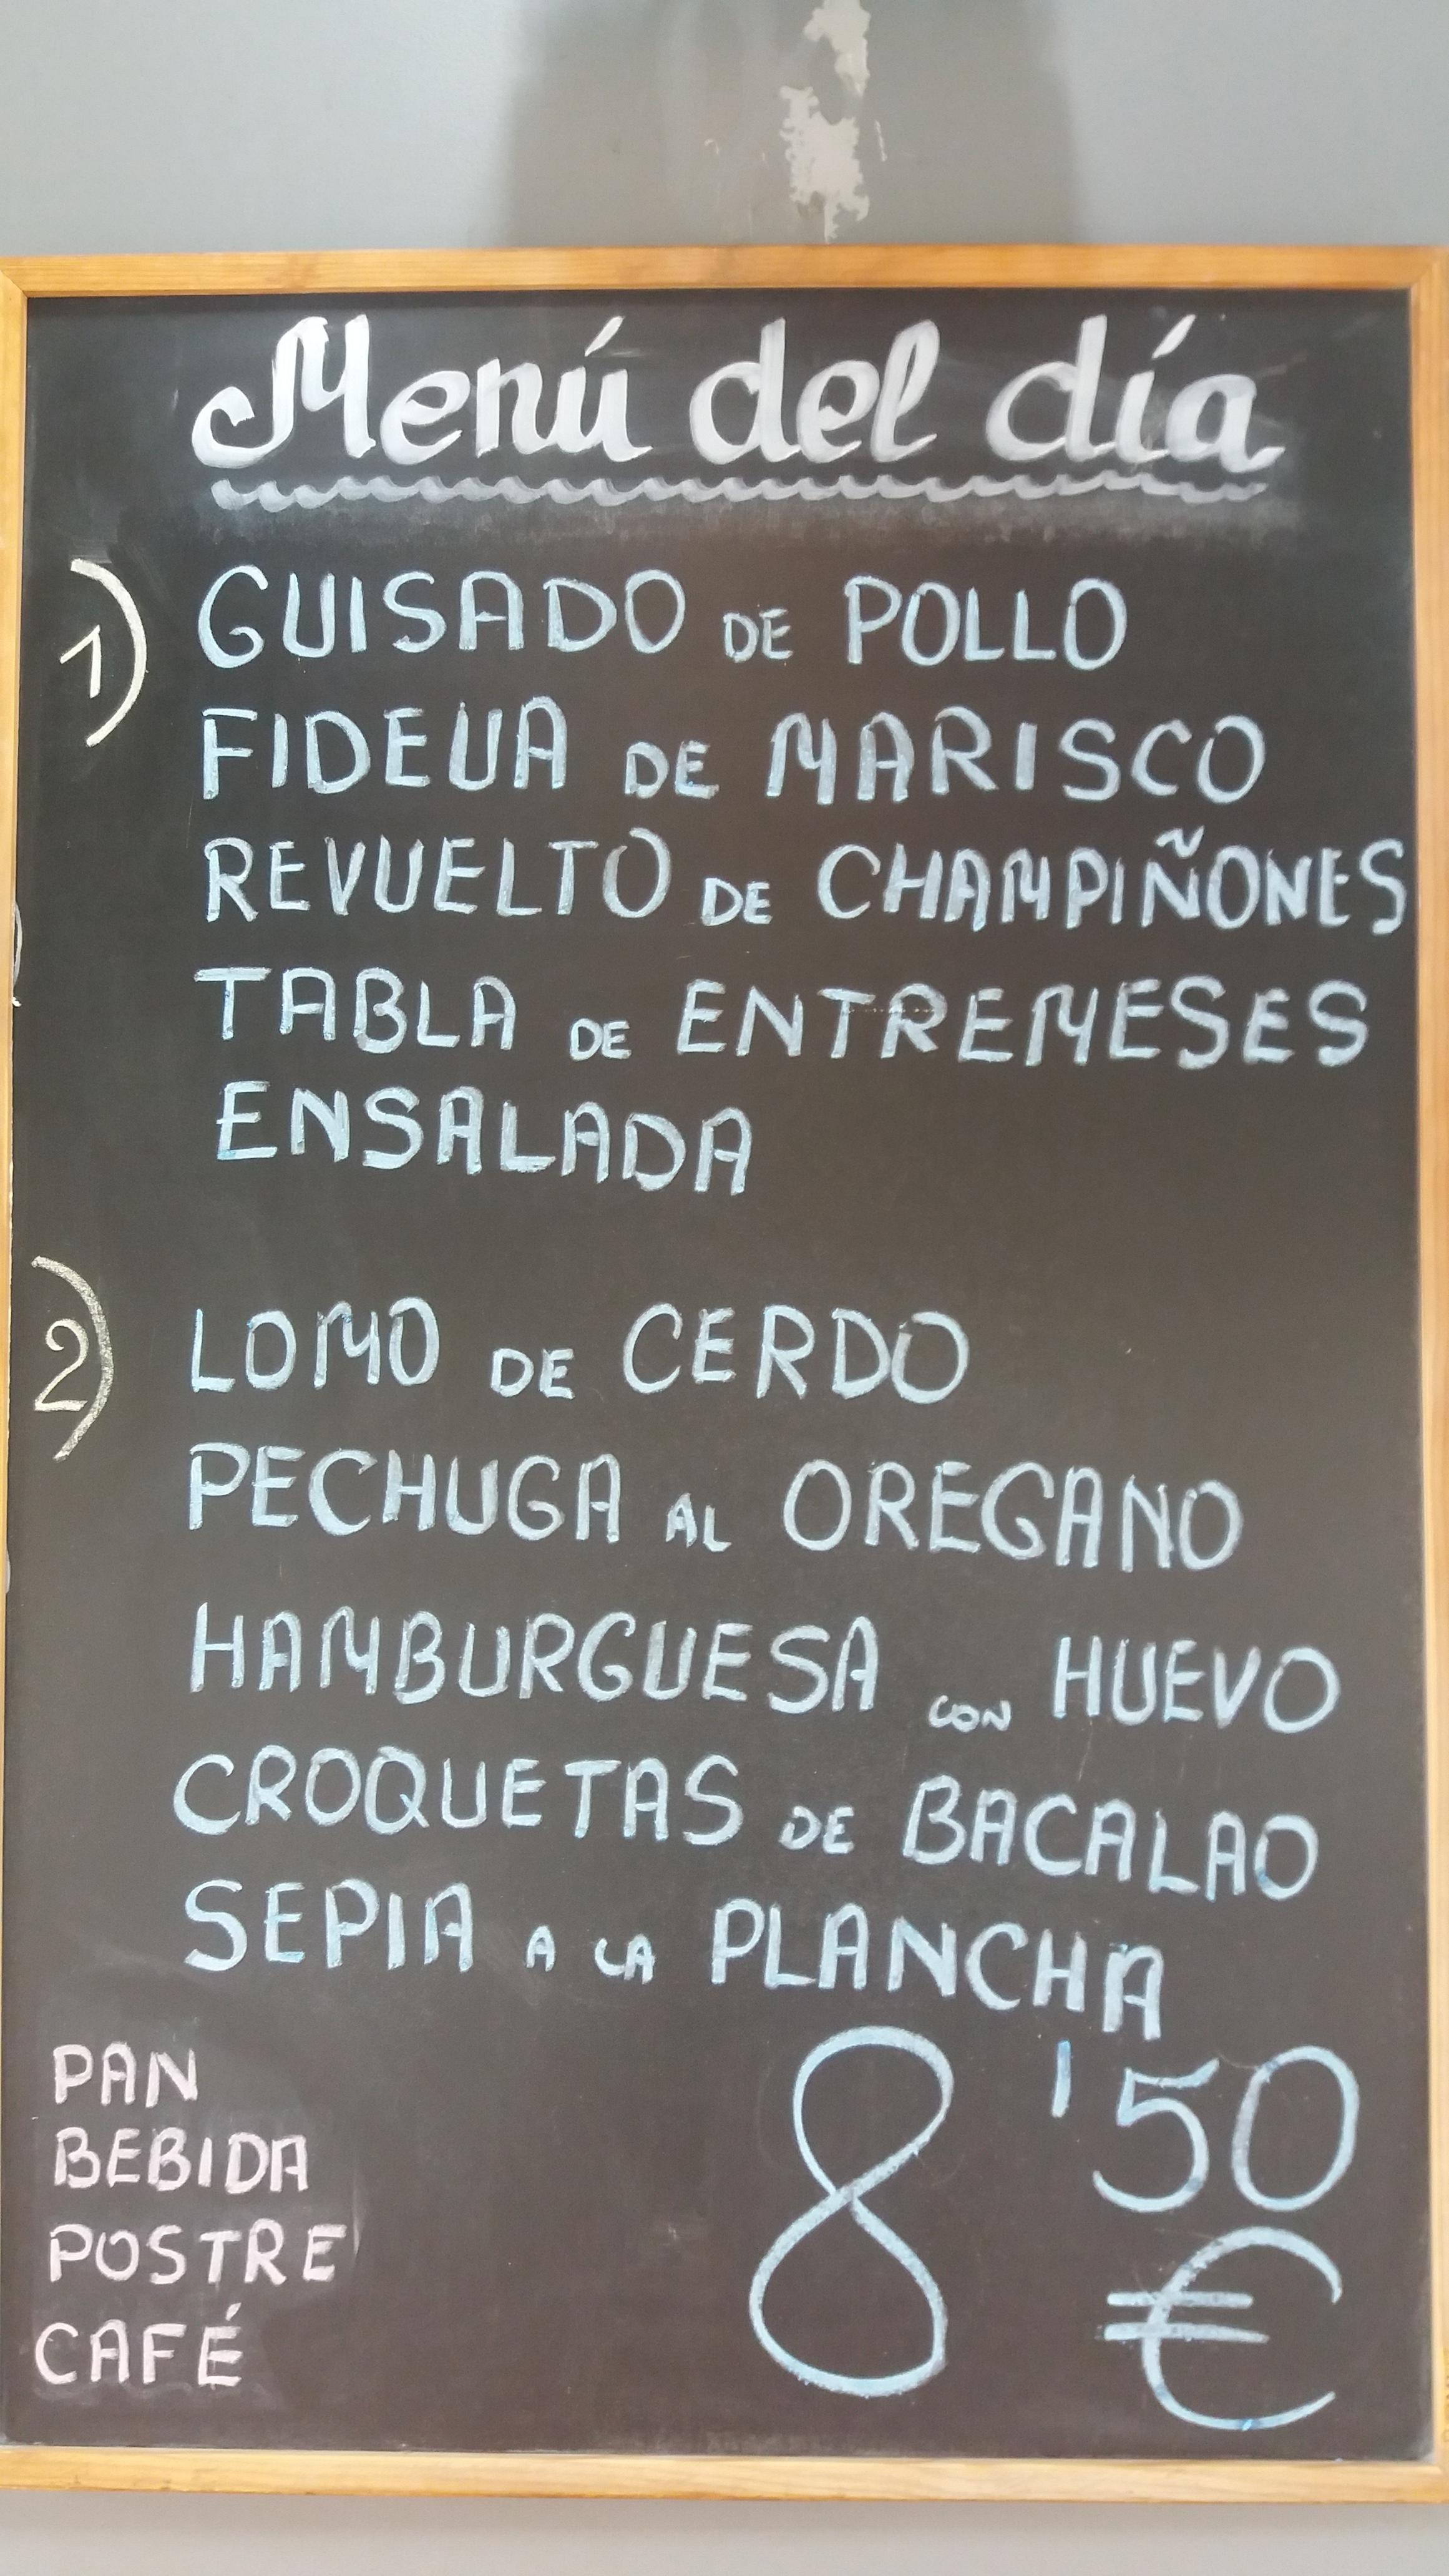 Menú del día
1) GUISADO DE POLLO
FIDEUA DE MARISCO
REVUELTO DE CHAMPIÑONES
TABLA DE ENTREMESES
ENSALADA
2) LOMO DE CERDO
PECHUGA AL OREGANO
HAMBURGUESA CON HUEVO
CROQUETAS DE BACALAO
SEPIA A LA PLANCHA
PAN
BEBIDA
POSTRE
CAFÉ
8'50 €